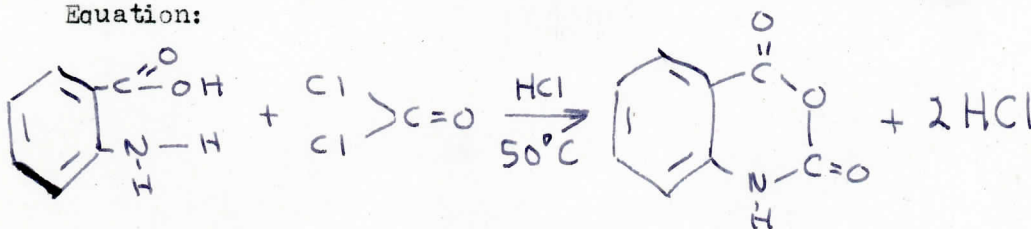 Equation:
C=O
OH
N-H
H
+
Cl
Cl
>C=O
HCl
50°C
O
C
O
C=O
N
H
+ 2HCl